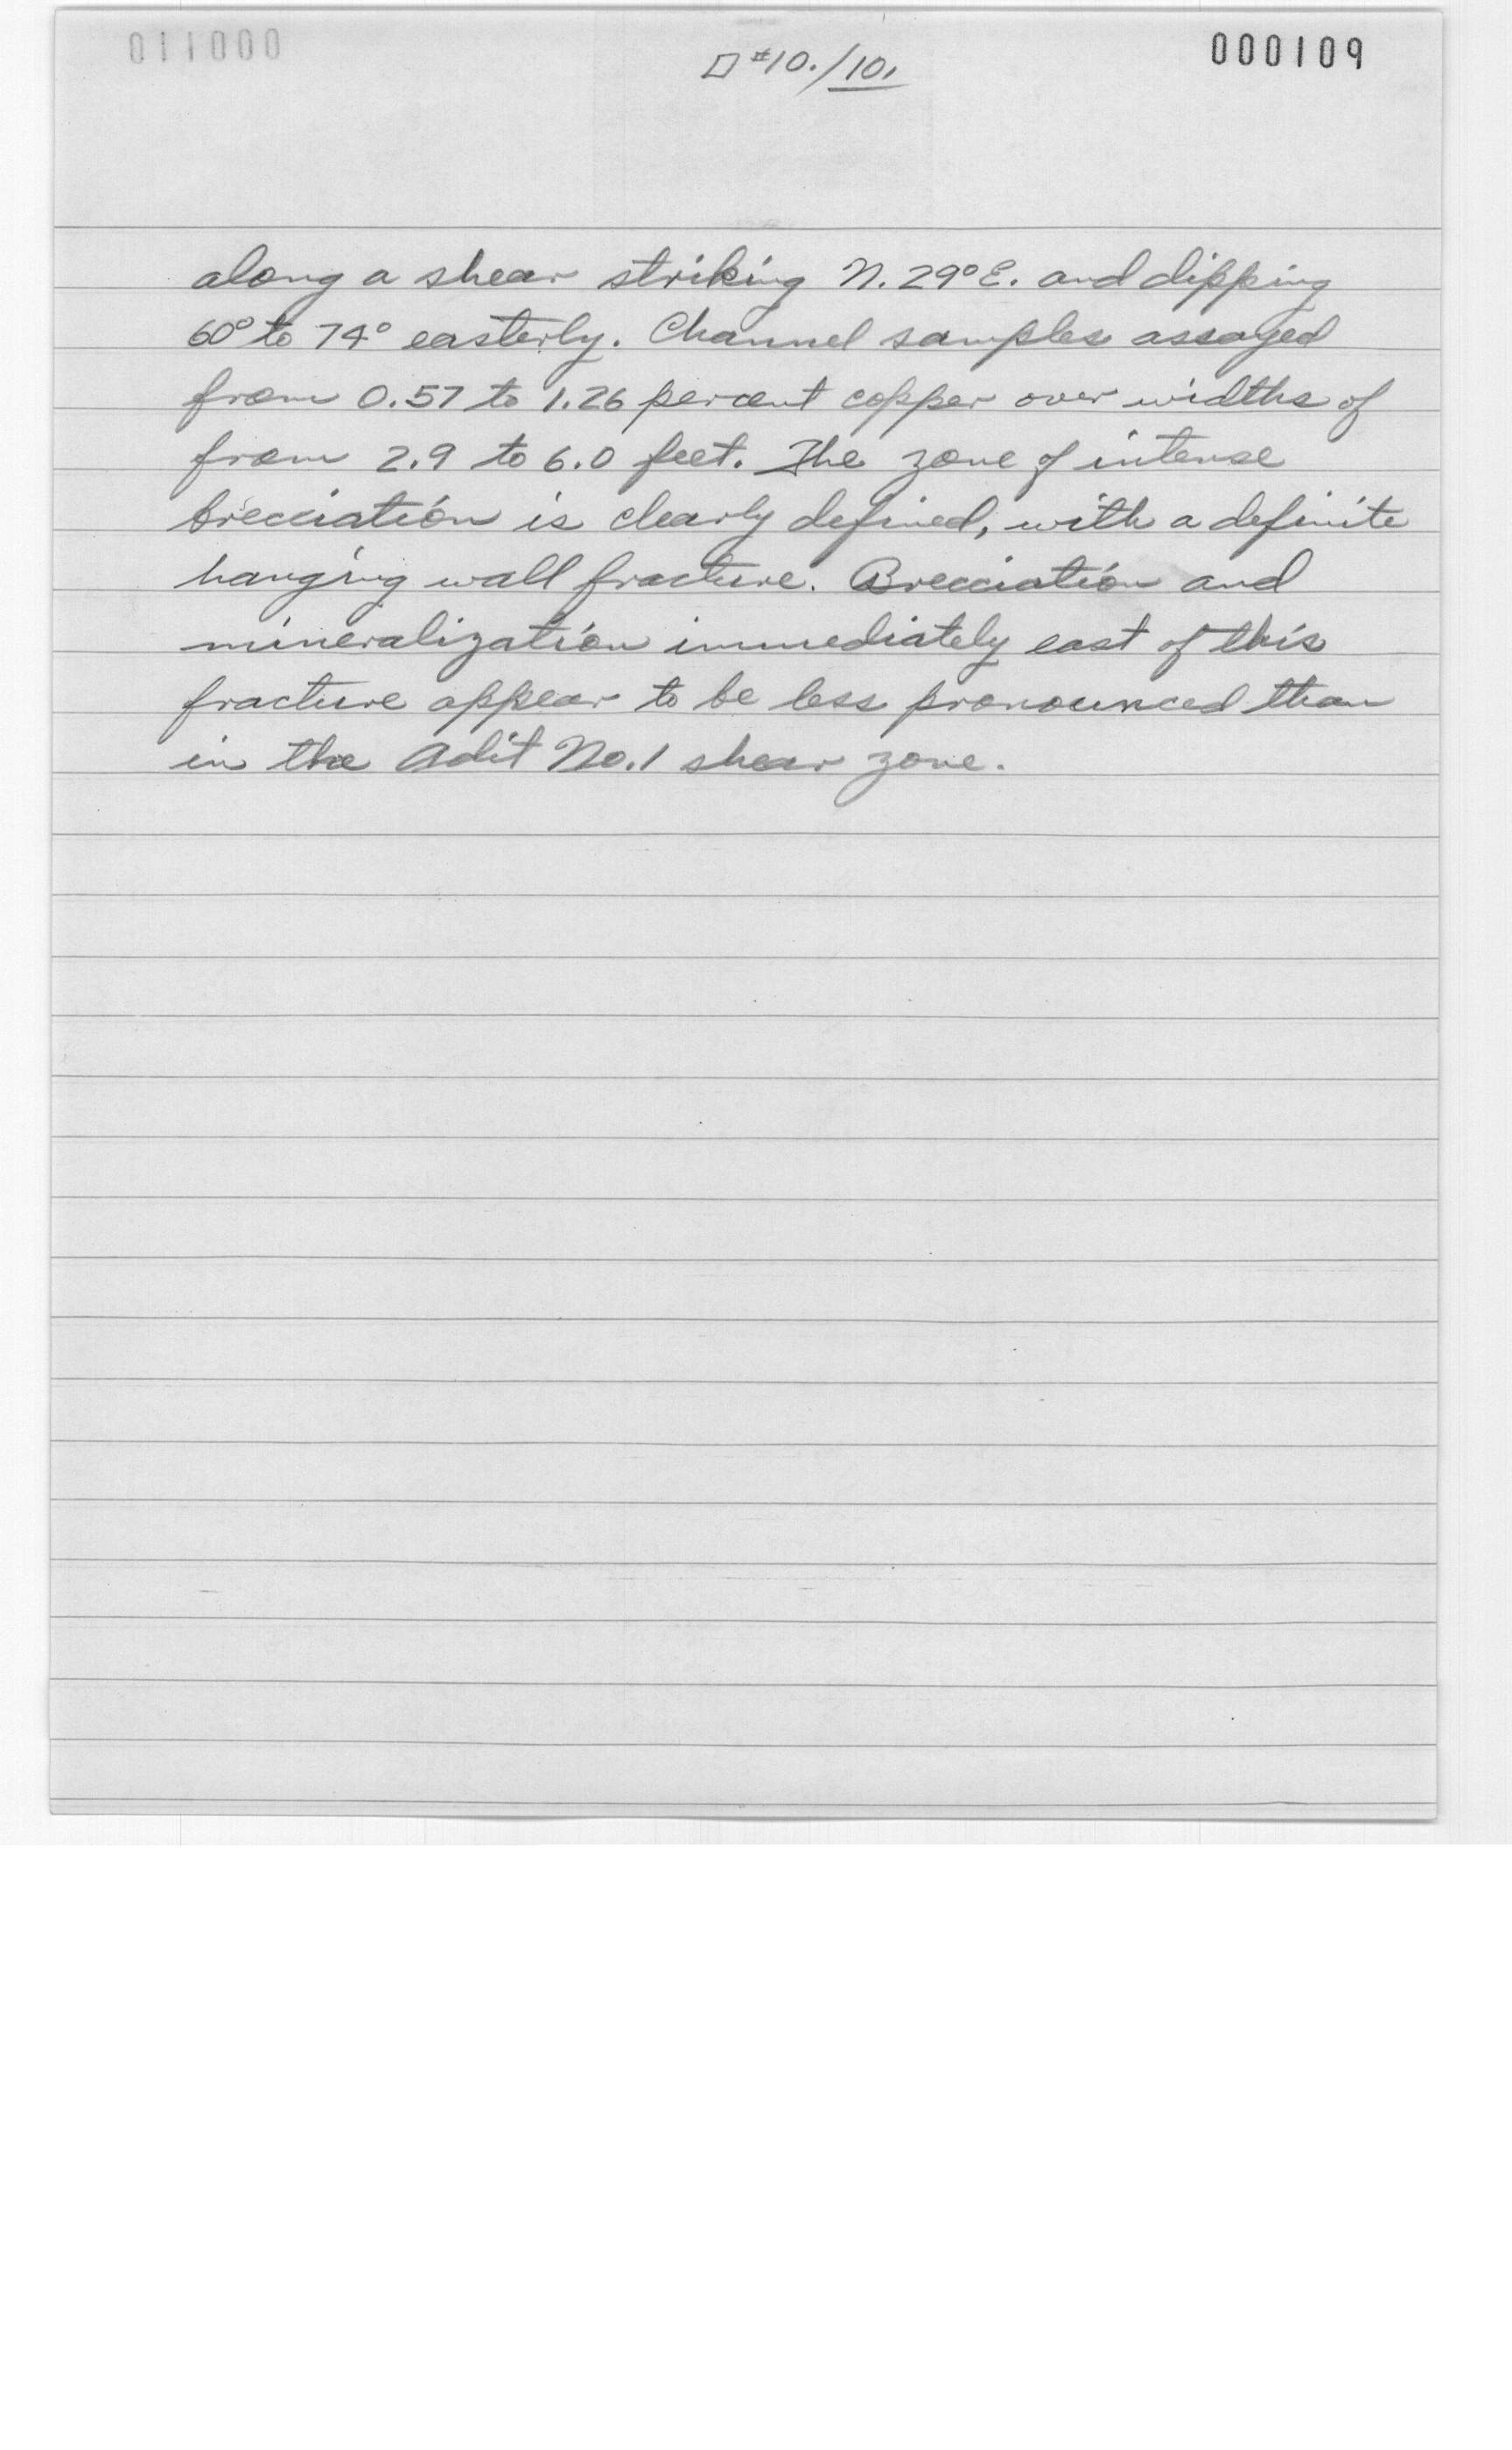 011000
□ #10./10.
000109
along a shear striking N. 29° E. and dipping
60° to 74° easterly. Channel samples assayed
from 0.57 to 1.26 percent copper over widths of
from 2.9 to 6.0 feet. The zone of intense
brecciation is clearly defined, with a definite
hanging wall fracture. Brecciation and
mineralization immediately east of this
fracture appear to be less pronounced than
in the Adit No. 1 shear zone.